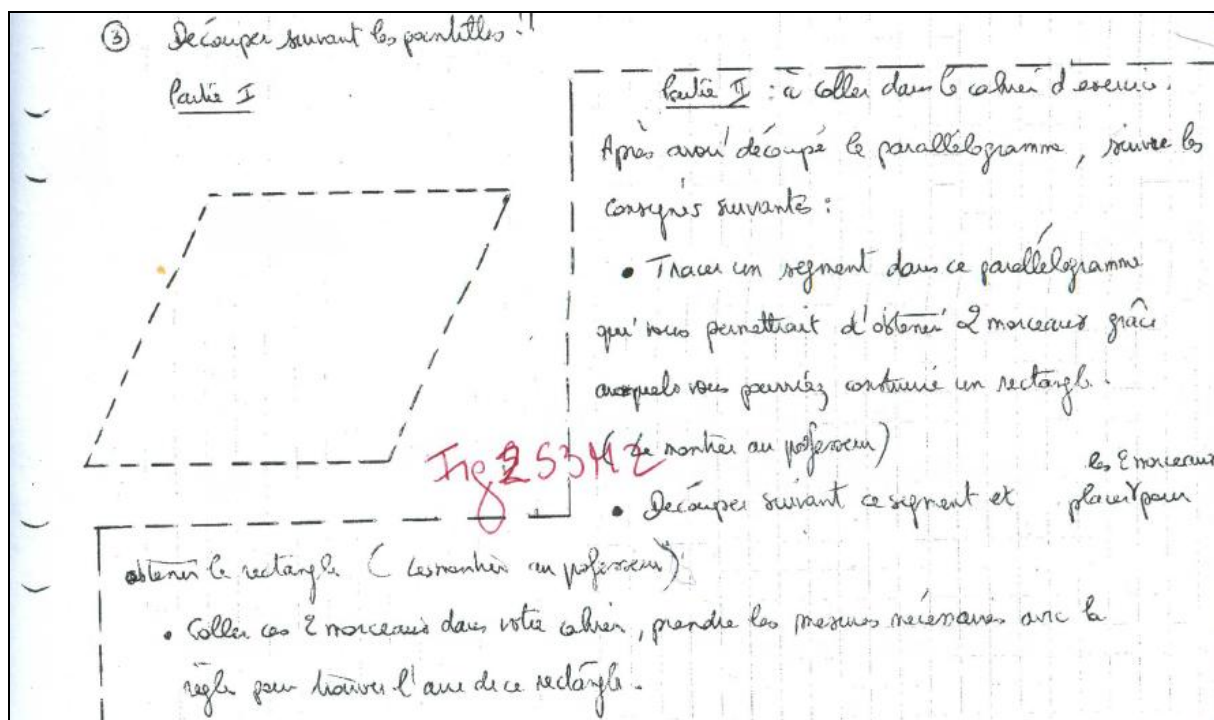 ③ Découper suivant les pointillés !!
Partie I
Partie II : à coller dans le cahier d'exercice.
Après avoir découpé le parallélogramme, suivre les
consignes suivantes :
• Tracer un segment dans ce parallélogramme
qui vous permettrait d'obtenir 2 morceaux grâce
auxquels vous pourriez construire un rectangle.
(Le montrer au professeur)
Fig 2 S3M2
• Découper suivant ce segment et placer les 2 morceaux pour
obtenir le rectangle (Les montrer au professeur)
• Coller ces 2 morceaux dans votre cahier, prendre les mesures nécessaires avec la
règle pour trouver l'aire de ce rectangle.